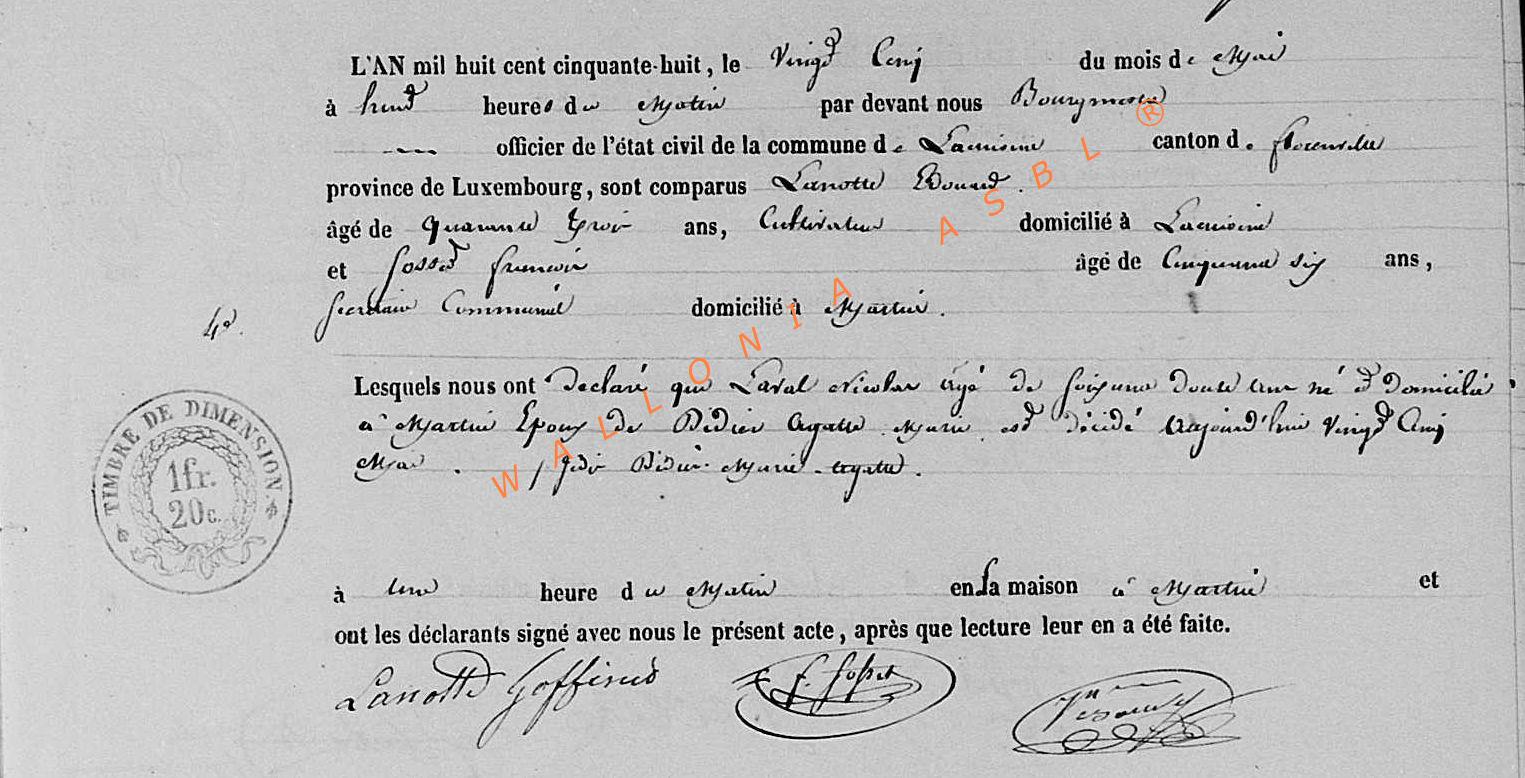 L'AN mil huit cent cinquante-huit, le Vingt Cinq du mois de Mai
à huit heures du Matin par devant nous Bourgmestre
officier de l'état civil de la commune de Lacuisine canton de florenville
province de Luxembourg, sont comparus Lanotte Edouard.
âgé de quarante trois ans, Cultivateur domicilié à Lacuisine
et fosset francois âgé de Cinquante six ans,
Secretaire Communal domicilié à Martué.
4e.
Lesquels nous ont declaré que Laval Nicolas âgé de soixante douze ans né et domicilié
à Martué Epoux de Didier Agathe Marie est décédé aujourd'hui vingt Cinq
Mai. Didier Marie-agathe.
TIMBRE DE DIMENSION
1fr.
20c.
à une heure du Matin en sa maison à Martué et
ont les déclarants signé avec nous le présent acte, après que lecture leur en a été faite.
Lanotte Goffinet f. fosset
WALLONIA ASBL ®